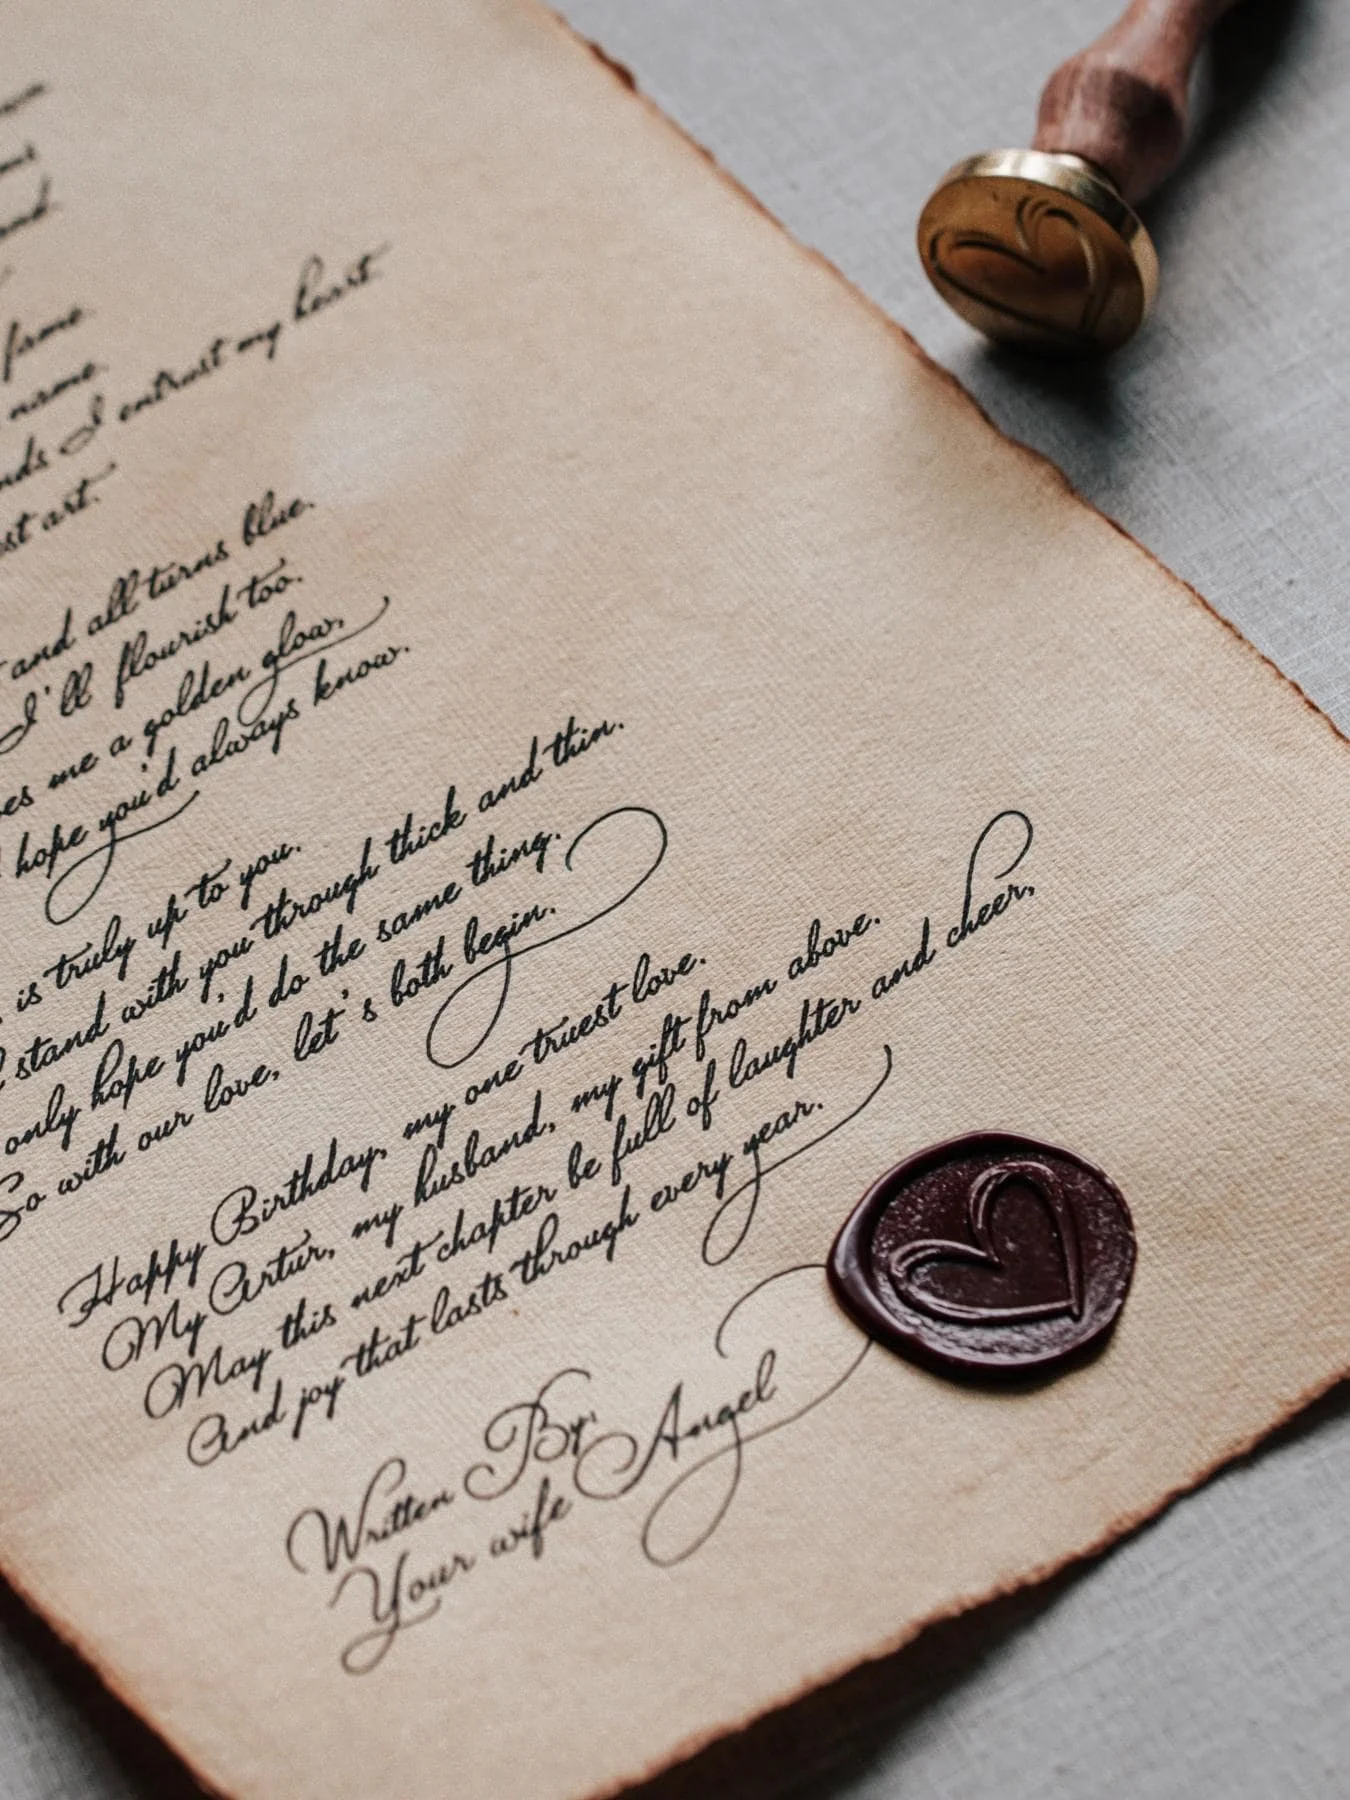 fame.
name.
I entrust my heart
art.
and all turns blue.
I'll flourish too.
me a golden glow.
hope you'd always know.
is truly up to you.
stand with you through thick and thin.
only hope you'd do the same thing.
So with our love, let's both begin.
Happy Birthday, my one truest love.
My Artur, my husband, my gift from above.
May this next chapter be full of laughter and cheer,
And joy that lasts through every year.
Written By,
Your wife Angel